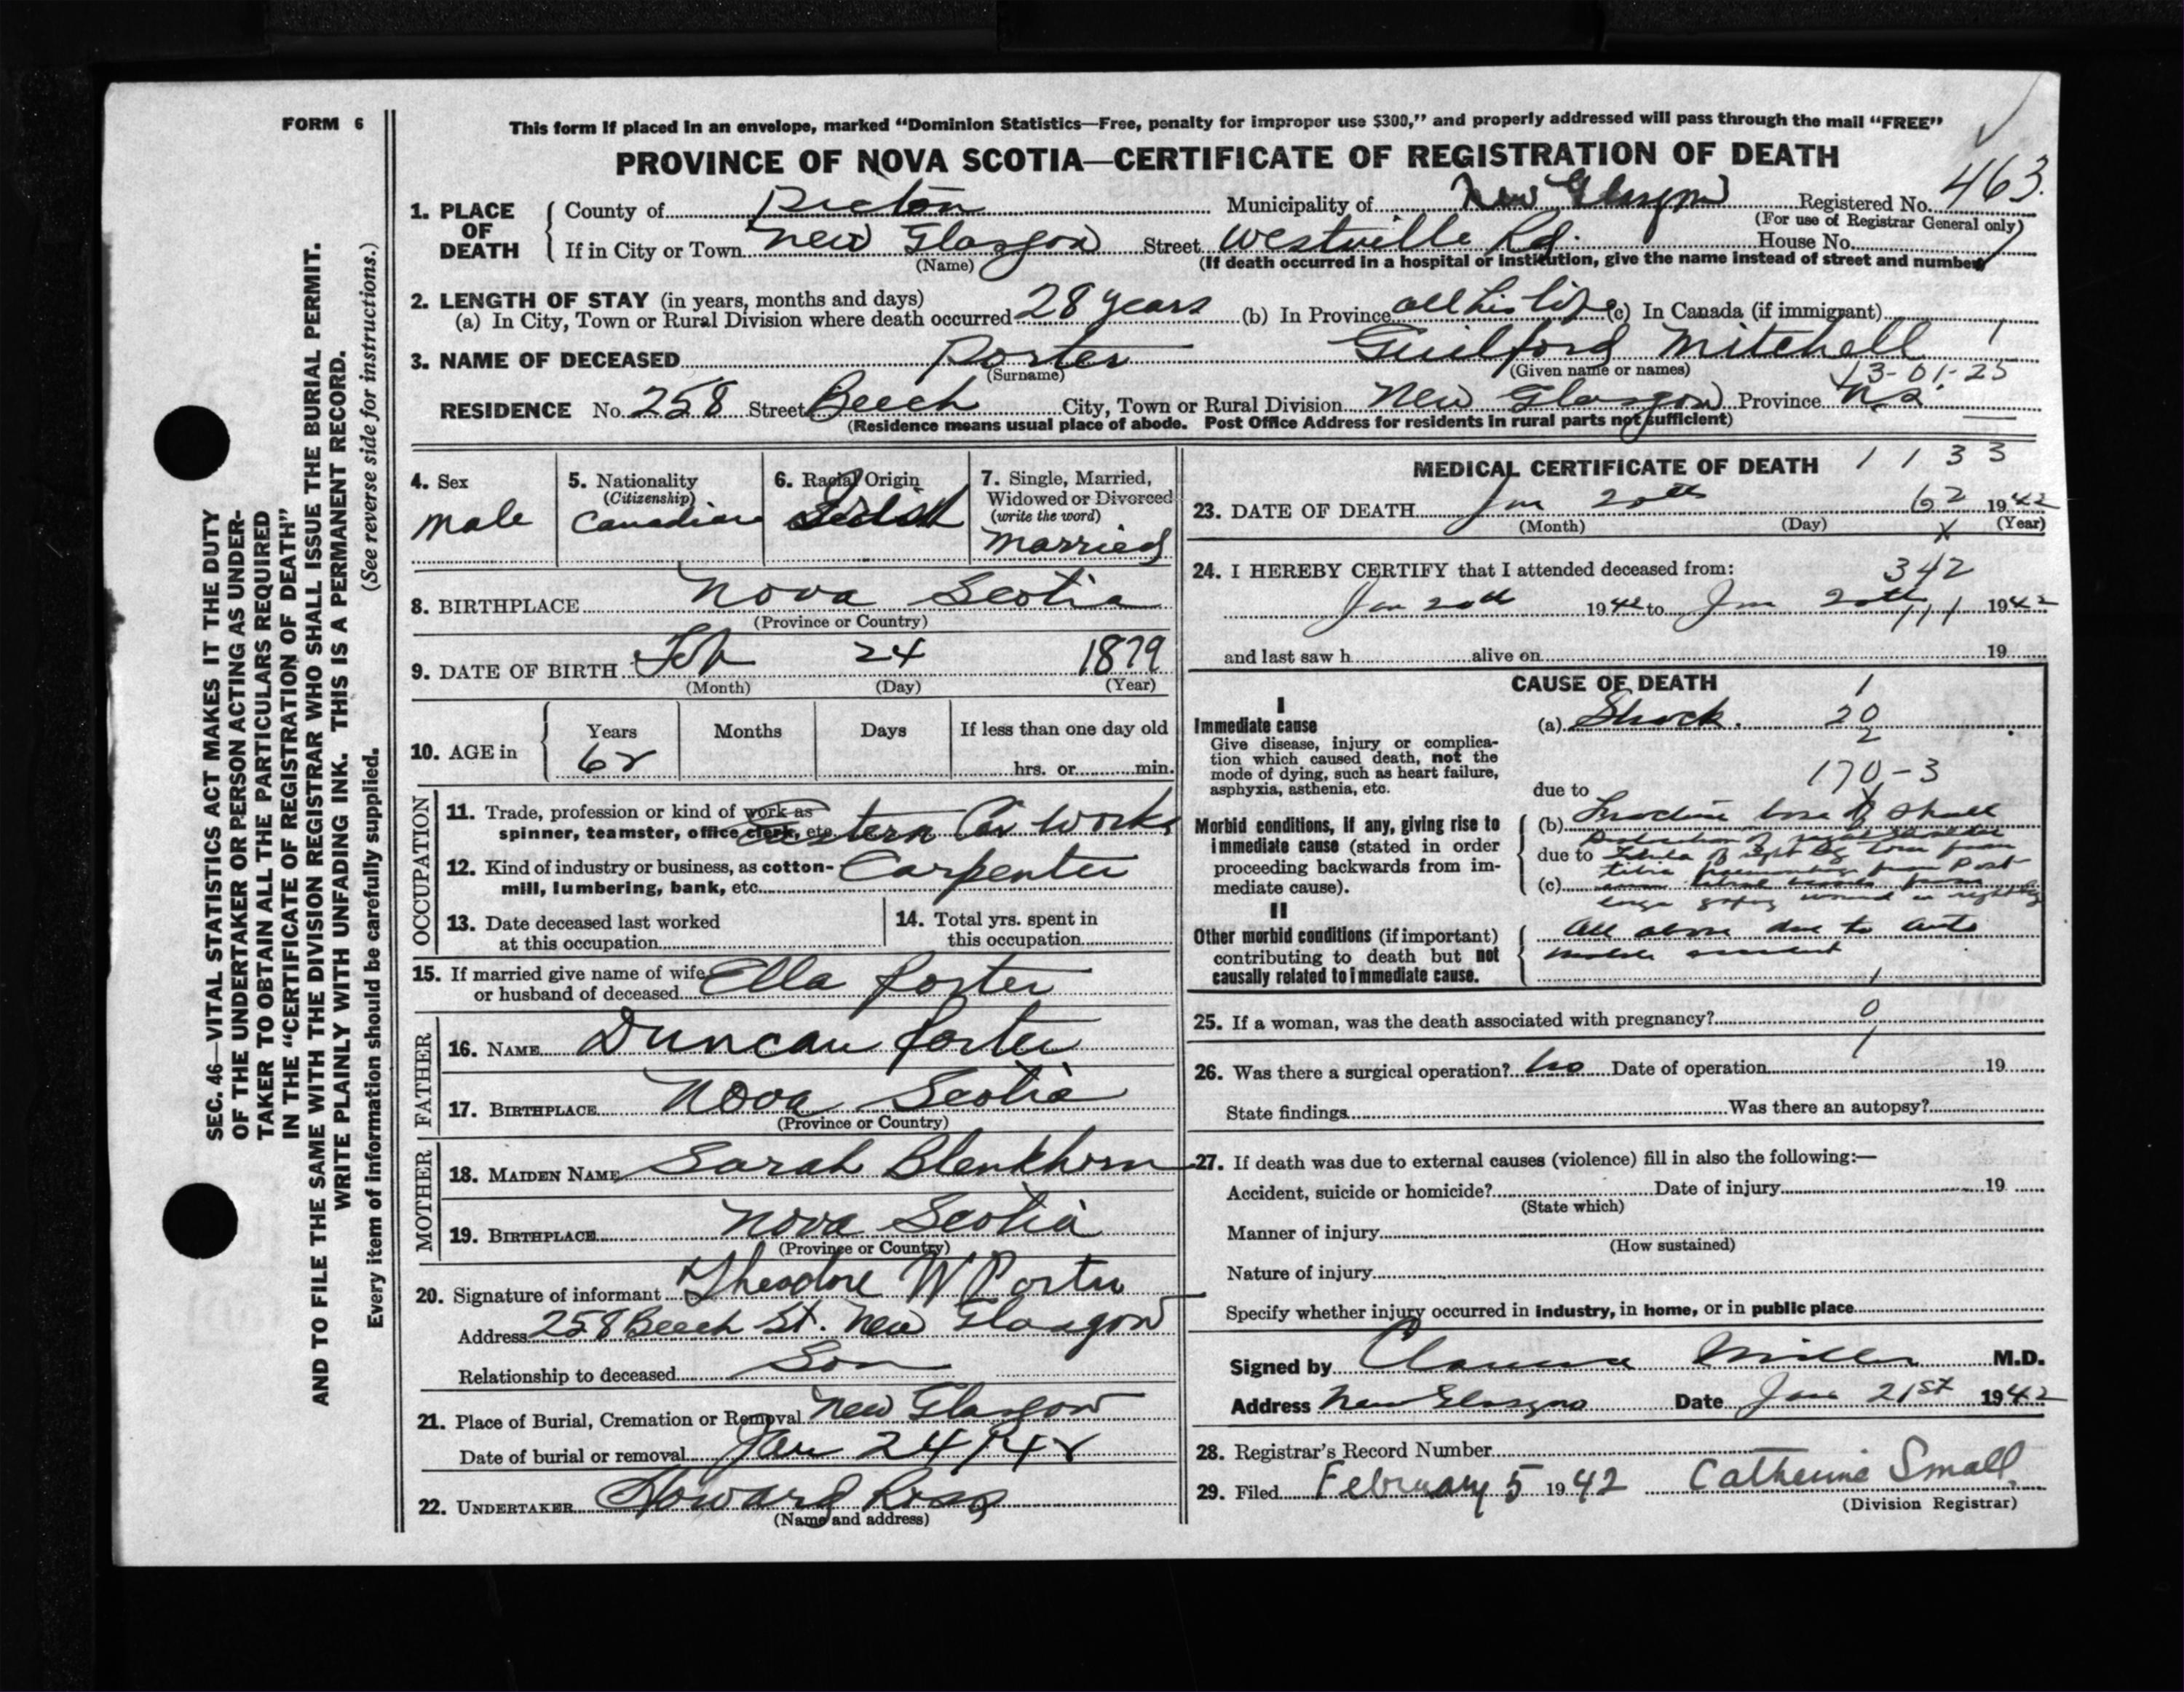 FORM 6
This form if placed in an envelope, marked "Dominion Statistics—Free, penalty for improper use $300," and properly addressed will pass through the mail "FREE"
PROVINCE OF NOVA SCOTIA—CERTIFICATE OF REGISTRATION OF DEATH
463.
1. PLACE OF DEATH
County of Pictou Municipality of New Glasgow Registered No.
(For use of Registrar General only)
If in City or Town New Glasgow Street Westville Rd. House No.
(Name) (If death occurred in a hospital or institution, give the name instead of street and number)
2. LENGTH OF STAY (in years, months and days)
(a) In City, Town or Rural Division where death occurred 28 years (b) In Province all his life (c) In Canada (if immigrant)
3. NAME OF DECEASED Porter Guilford Mitchell 1
(Surname) (Given name or names) 13-01-25
RESIDENCE No. 258 Street Beech City, Town or Rural Division New Glasgow Province N.S.
(Residence means usual place of abode. Post Office Address for residents in rural parts not sufficient)
4. Sex
male
5. Nationality
(Citizenship)
Canadian
6. Racial Origin
7. Single, Married,
Widowed or Divorced
(write the word)
married
8. BIRTHPLACE Nova Scotia
(Province or Country)
9. DATE OF BIRTH Feb 24 1879
(Month) (Day) (Year)
10. AGE in
Years Months Days If less than one day old
62 hrs. or min.
OCCUPATION
11. Trade, profession or kind of work as
spinner, teamster, office clerk, etc. Eastern Car Works
12. Kind of industry or business, as cotton-
mill, lumbering, bank, etc. Carpenter
13. Date deceased last worked
at this occupation
14. Total yrs. spent in
this occupation
15. If married give name of wife
or husband of deceased Ella Porter
FATHER
16. NAME Duncan Porter
17. BIRTHPLACE Nova Scotia
(Province or Country)
MOTHER
18. MAIDEN NAME Sarah Blenkhorn
19. BIRTHPLACE Nova Scotia
(Province or Country)
20. Signature of informant Theodore W Porter
Address 258 Beech St. New Glasgow
Relationship to deceased Son
21. Place of Burial, Cremation or Removal New Glasgow
Date of burial or removal Jan 24/42
22. UNDERTAKER Howard Ross
(Name and address)
MEDICAL CERTIFICATE OF DEATH 1 1 3 3
23. DATE OF DEATH Jan 20th 62 1942
(Month) (Day) (Year)
X
24. I HEREBY CERTIFY that I attended deceased from:
342
Jan 20th 1942 to Jan 20th 1942
111
and last saw h alive on 19
CAUSE OF DEATH
1
I
Immediate cause
Give disease, injury or complica-
tion which caused death, not the
mode of dying, such as heart failure,
asphyxia, asthenia, etc.
(a) Shock. 20
2
170-3
due to
Morbid conditions, if any, giving rise to
immediate cause (stated in order
proceeding backwards from im-
mediate cause).
(b) Fracture base of skull
right shoulder
due to Fibula of right leg torn from
tibia from Post
(c) tibial from
large wound
II
Other morbid conditions (if important)
contributing to death but not
causally related to immediate cause.
All above due to auto
mobile accident
1
25. If a woman, was the death associated with pregnancy? 0
1
26. Was there a surgical operation? No Date of operation 19
State findings Was there an autopsy?
27. If death was due to external causes (violence) fill in also the following:—
Accident, suicide or homicide? Date of injury 19
(State which)
Manner of injury
(How sustained)
Nature of injury
Specify whether injury occurred in industry, in home, or in public place
Signed by Clarence Miller M.D.
Address New Glasgow Date Jan 21st 1942
28. Registrar's Record Number
29. Filed February 5 1942 Catherine Small
(Division Registrar)
SEC. 46—VITAL STATISTICS ACT MAKES IT THE DUTY
OF THE UNDERTAKER OR PERSON ACTING AS UNDER-
TAKER TO OBTAIN ALL THE PARTICULARS REQUIRED
IN THE "CERTIFICATE OF REGISTRATION OF DEATH"
AND TO FILE THE SAME WITH THE DIVISION REGISTRAR WHO SHALL ISSUE THE BURIAL PERMIT.
WRITE PLAINLY WITH UNFADING INK. THIS IS A PERMANENT RECORD.
Every item of information should be carefully supplied. (See reverse side for instructions.)